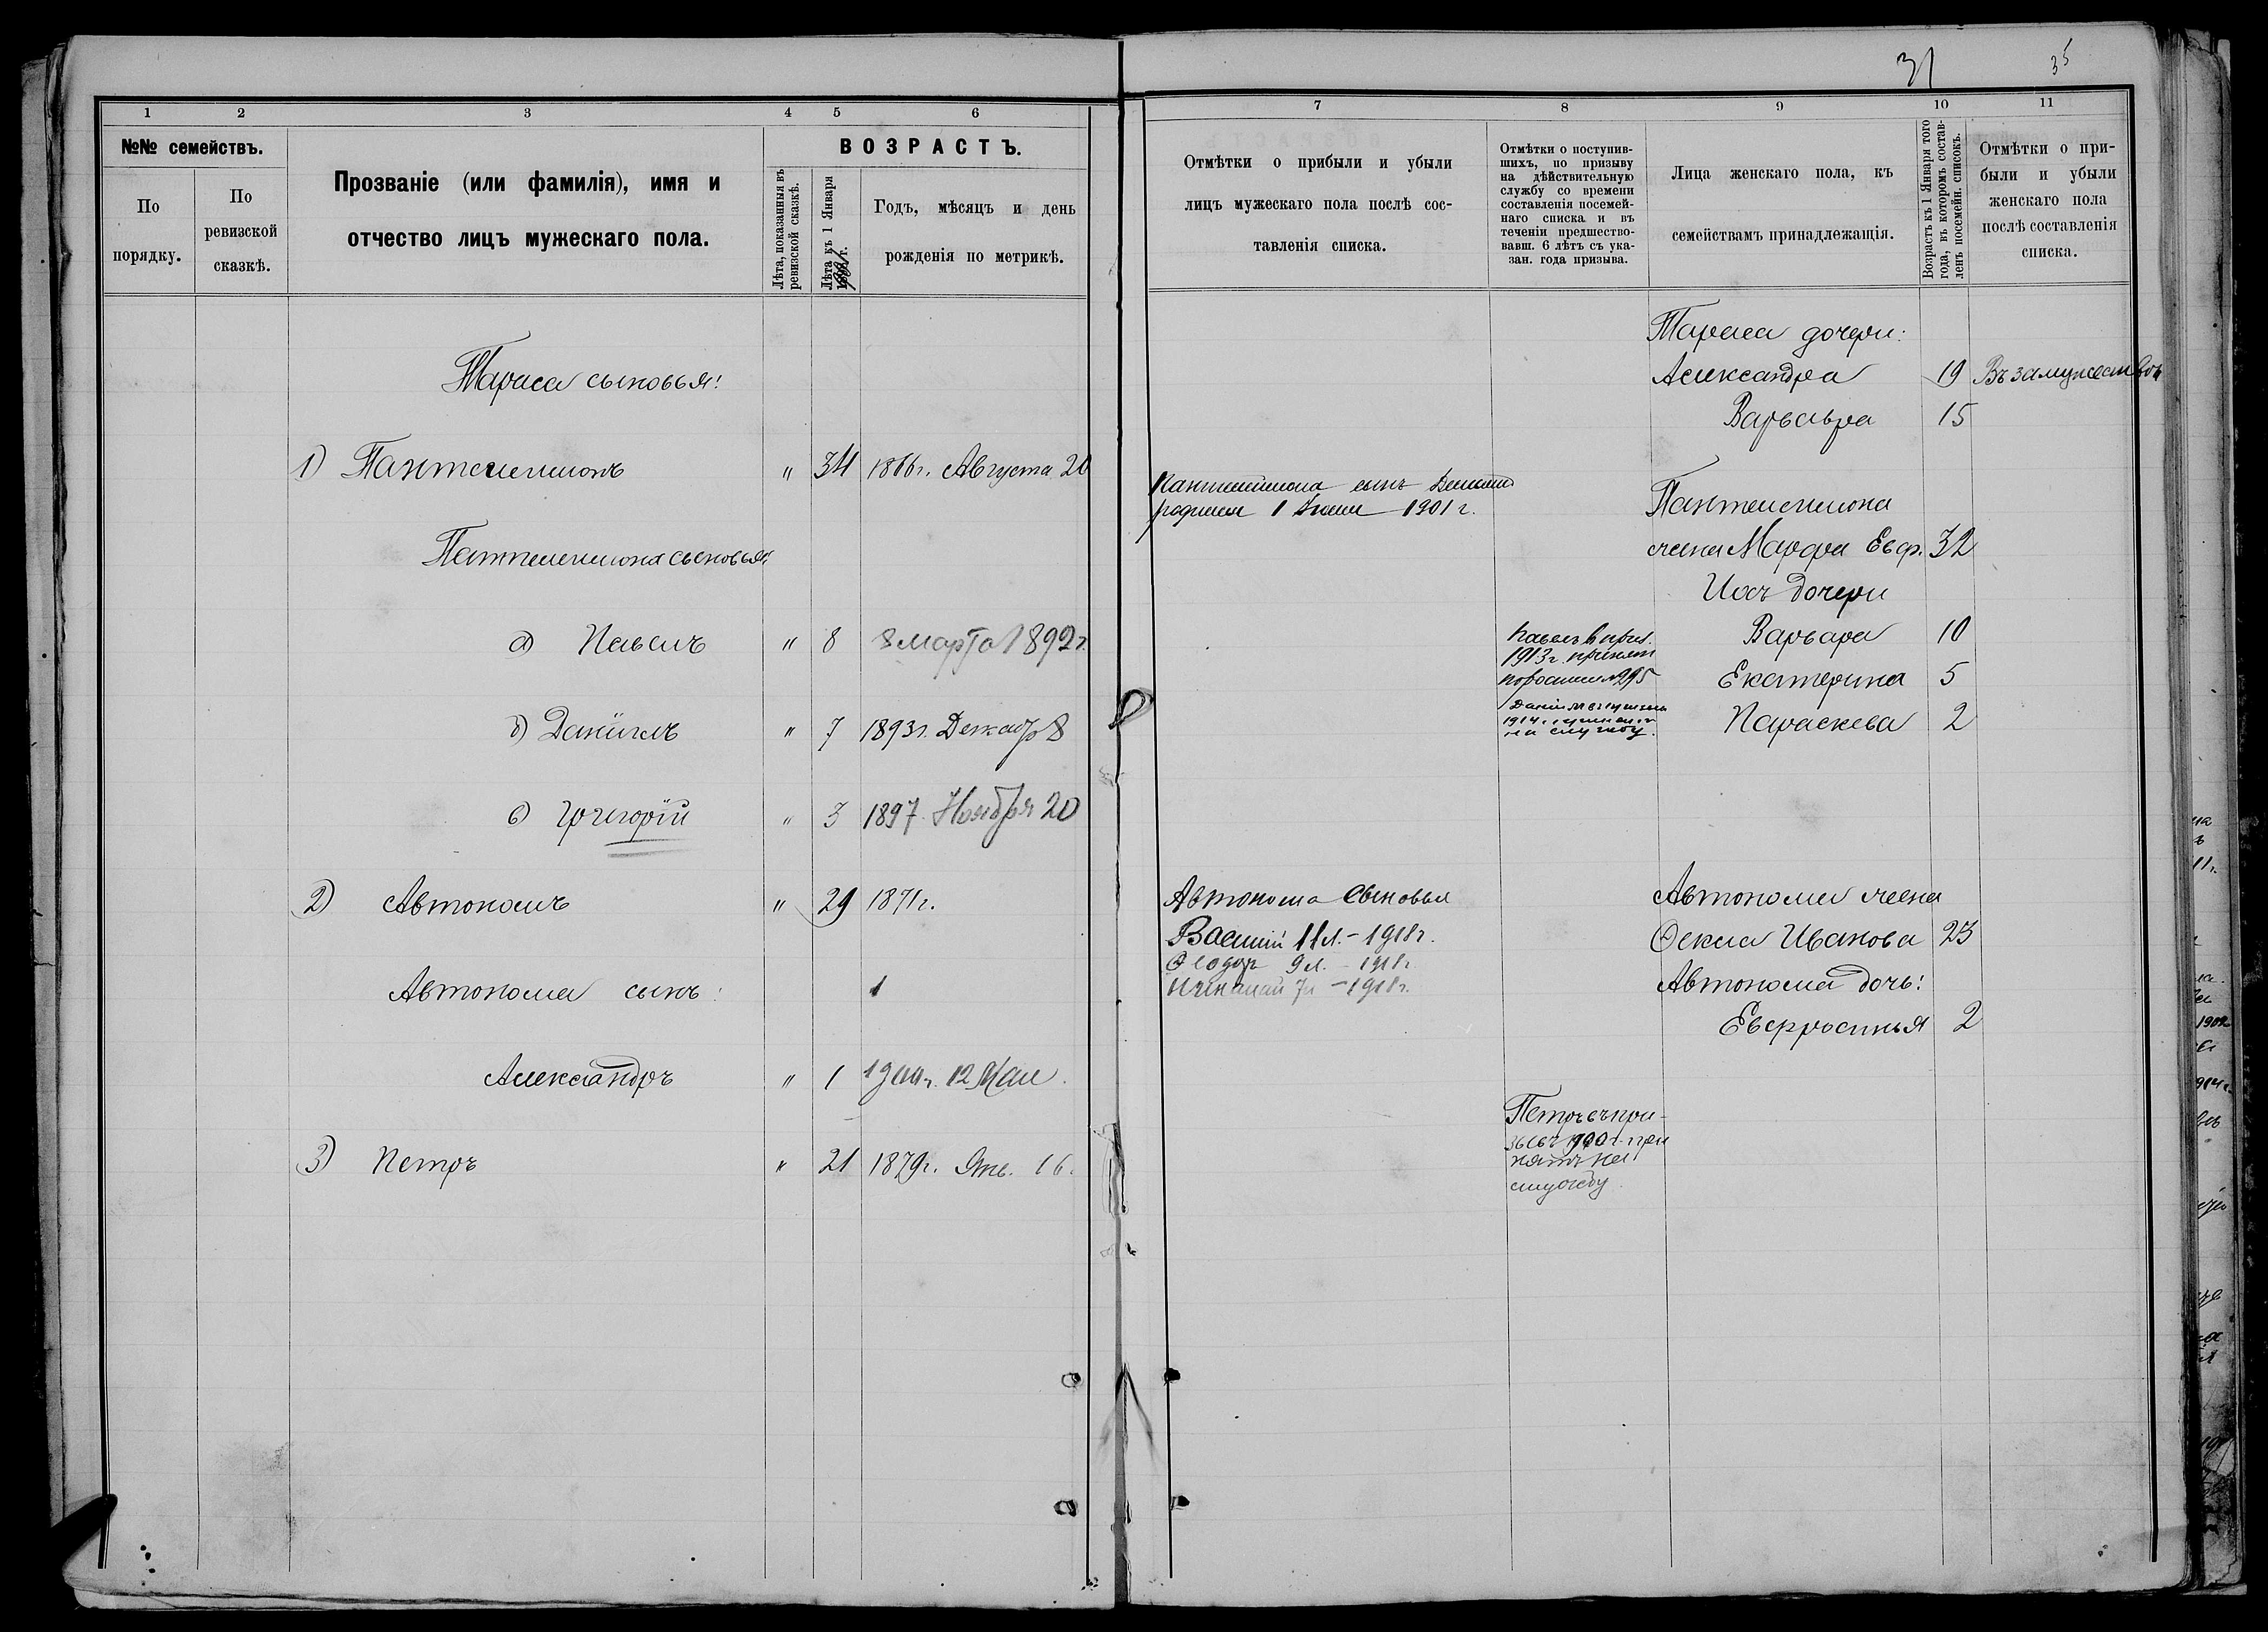 31
35
1
2
3
4
5
6
№№ семействъ.
По порядку.
По ревизской сказкѣ.
Прозваніе (или фамилія), имя и
отчество лицъ мужескаго пола.
ВОЗРАСТЪ.
Лѣта, показанныя въ
ревизской сказкѣ.
Лѣта къ 1 Января
Годъ, мѣсяцъ и день
рожденія по метрикѣ.
Тараса сыновья:
1) Пантелеимонъ " 34 1866г. Августа 20
Пантелеимона сыновья:
а) Павелъ " 8 8 марта 1892г.
б) Даніилъ " 7 1893г. Декабр 8
в) Григорій " 3 1897 Ноября 20
2) Автономъ " 29 1871г.
Автонома сынъ: 1
Александръ " 1 1900г. 12 Мая.
3) Петръ " 21 1879г. Янв. 16.
7
8
9
10
11
Отмѣтки о прибыли и убыли
лицъ мужескаго пола послѣ сос-
тавленія списка.
Отмѣтки о поступив-
шихъ, по призыву
на дѣйствительную
службу со времени
составленія посемей-
наго списка и въ
теченіи предшество-
вавш. 6 лѣтъ съ ука-
зан. года призыва.
Лица женскаго пола, къ
семействамъ принадлежащія.
Возрастъ къ 1 Января того
года, въ которомъ состав-
ленъ посемейн. списокъ.
Отмѣтки о при-
были и убыли
женскаго пола
послѣ составленія
списка.
Тараса дочери:
Александра 19 Въ замужествѣ
Варвара 15
Пантелимона сынъ
родился 1 1901г.
Пантелеимона
жена Марфа Евф. 32
Ихъ дочери
Варвара 10
Екатерина 5
Параскева 2
Павелъ в приз.
1913г. принятъ
№295
Даніилъ
1914г.
на службу.
Автонома сыновья
Василій 11л. - 1918г.
Ѳеодоръ 9л. - 1918г.
Николай 7л - 1918г.
Автонома жена
Ѳекла Иванова 23
Автонома дочь:
Евфросинья 2
Петръ въ при-
зывъ 1900г. при
нятъ на
службу